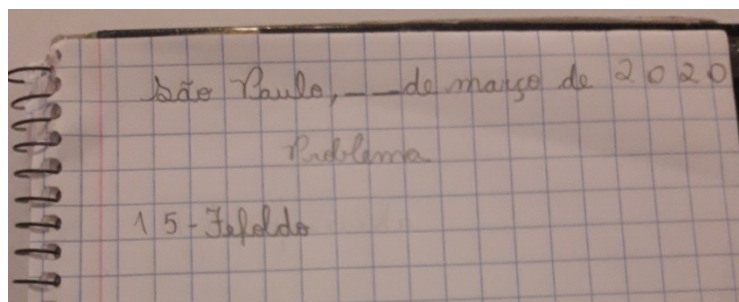 São Paulo, __ de março de 2020
Problema
15-Fefoldo